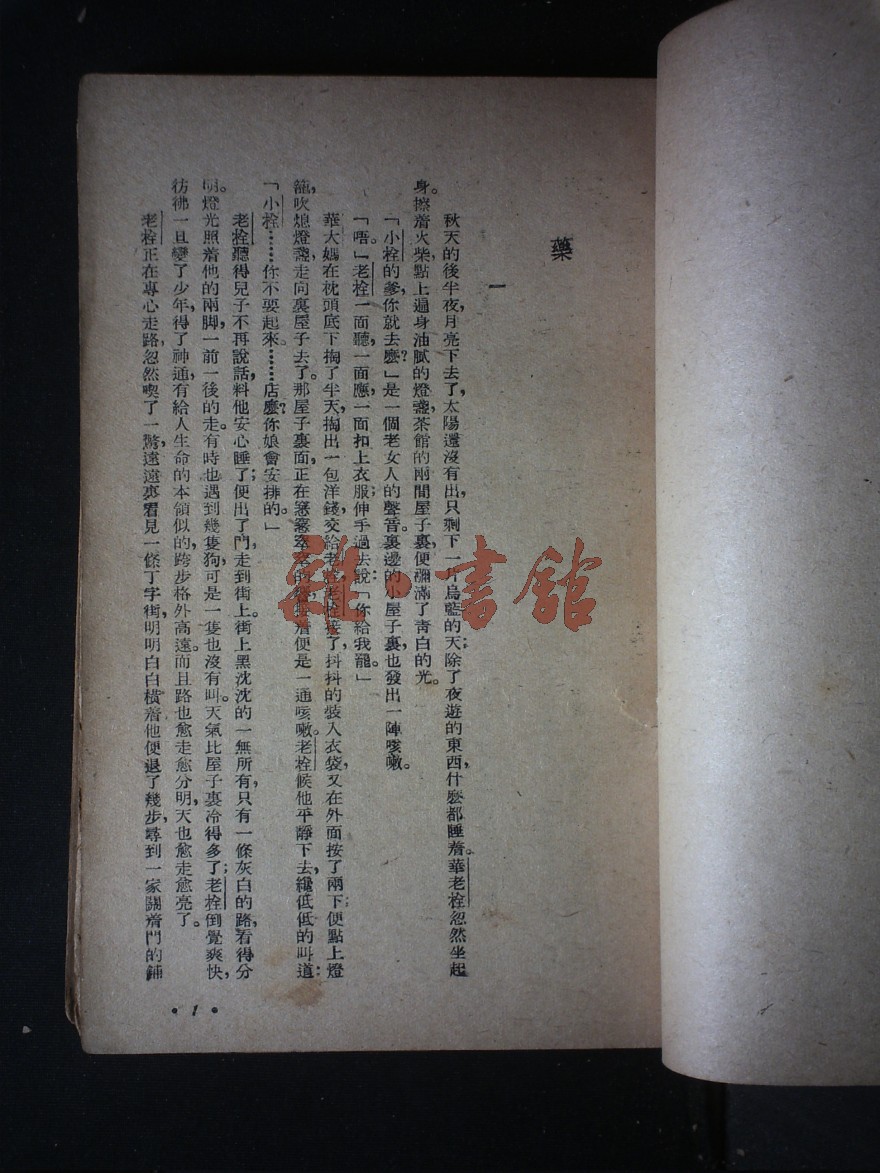 藥
一
秋天的後半夜，月亮下去了，太陽還沒有出，只剩下一片烏藍的天；除了夜遊的東西，什麼都睡着。華老栓忽然坐起
身，擦着火柴，點上遍身油膩的燈盞，茶館的兩間屋子裏，便瀰滿了青白的光。
「小栓的爹，你就去麽？」是一個老女人的聲音。裏邊的小屋子裏，也發出一陣咳嗽。
「唔。」老栓一面聽，一面應，一面扣上衣服；伸手過去說，「你給我罷。」
華大媽在枕頭底下掏了半天，掏出一包洋錢，交給老栓，老栓接了，抖抖的裝入衣袋，又在外面按了兩下；便點上燈
籠，吹熄燈盞，走向裏屋子去了。那屋子裏面，正在窸窸窣窣的響，接着便是一通咳嗽。老栓候他平靜下去，纔低低的叫道：
「小栓……你不要起來。……店麽？你娘會安排的。」
老栓聽得兒子不再說話，料他安心睡了；便出了門，走到街上。街上黑沈沈的一無所有，只有一條灰白的路，看得分
明。燈光照着他的兩脚，一前一後的走。有時也遇到幾隻狗，可是一隻也沒有叫。天氣比屋子裏冷得多了；老栓倒覺爽快，
彷彿一旦變了少年，得了神通，有給人生命的本領似的，跨步格外高遠。而且路也愈走愈分明，天也愈走愈亮了。
老栓正在專心走路，忽然喫了一驚，遠遠裏看見一條丁字街，明明白白橫着。他便退了幾步，尋到一家關着門的鋪
•1•
雜·書館